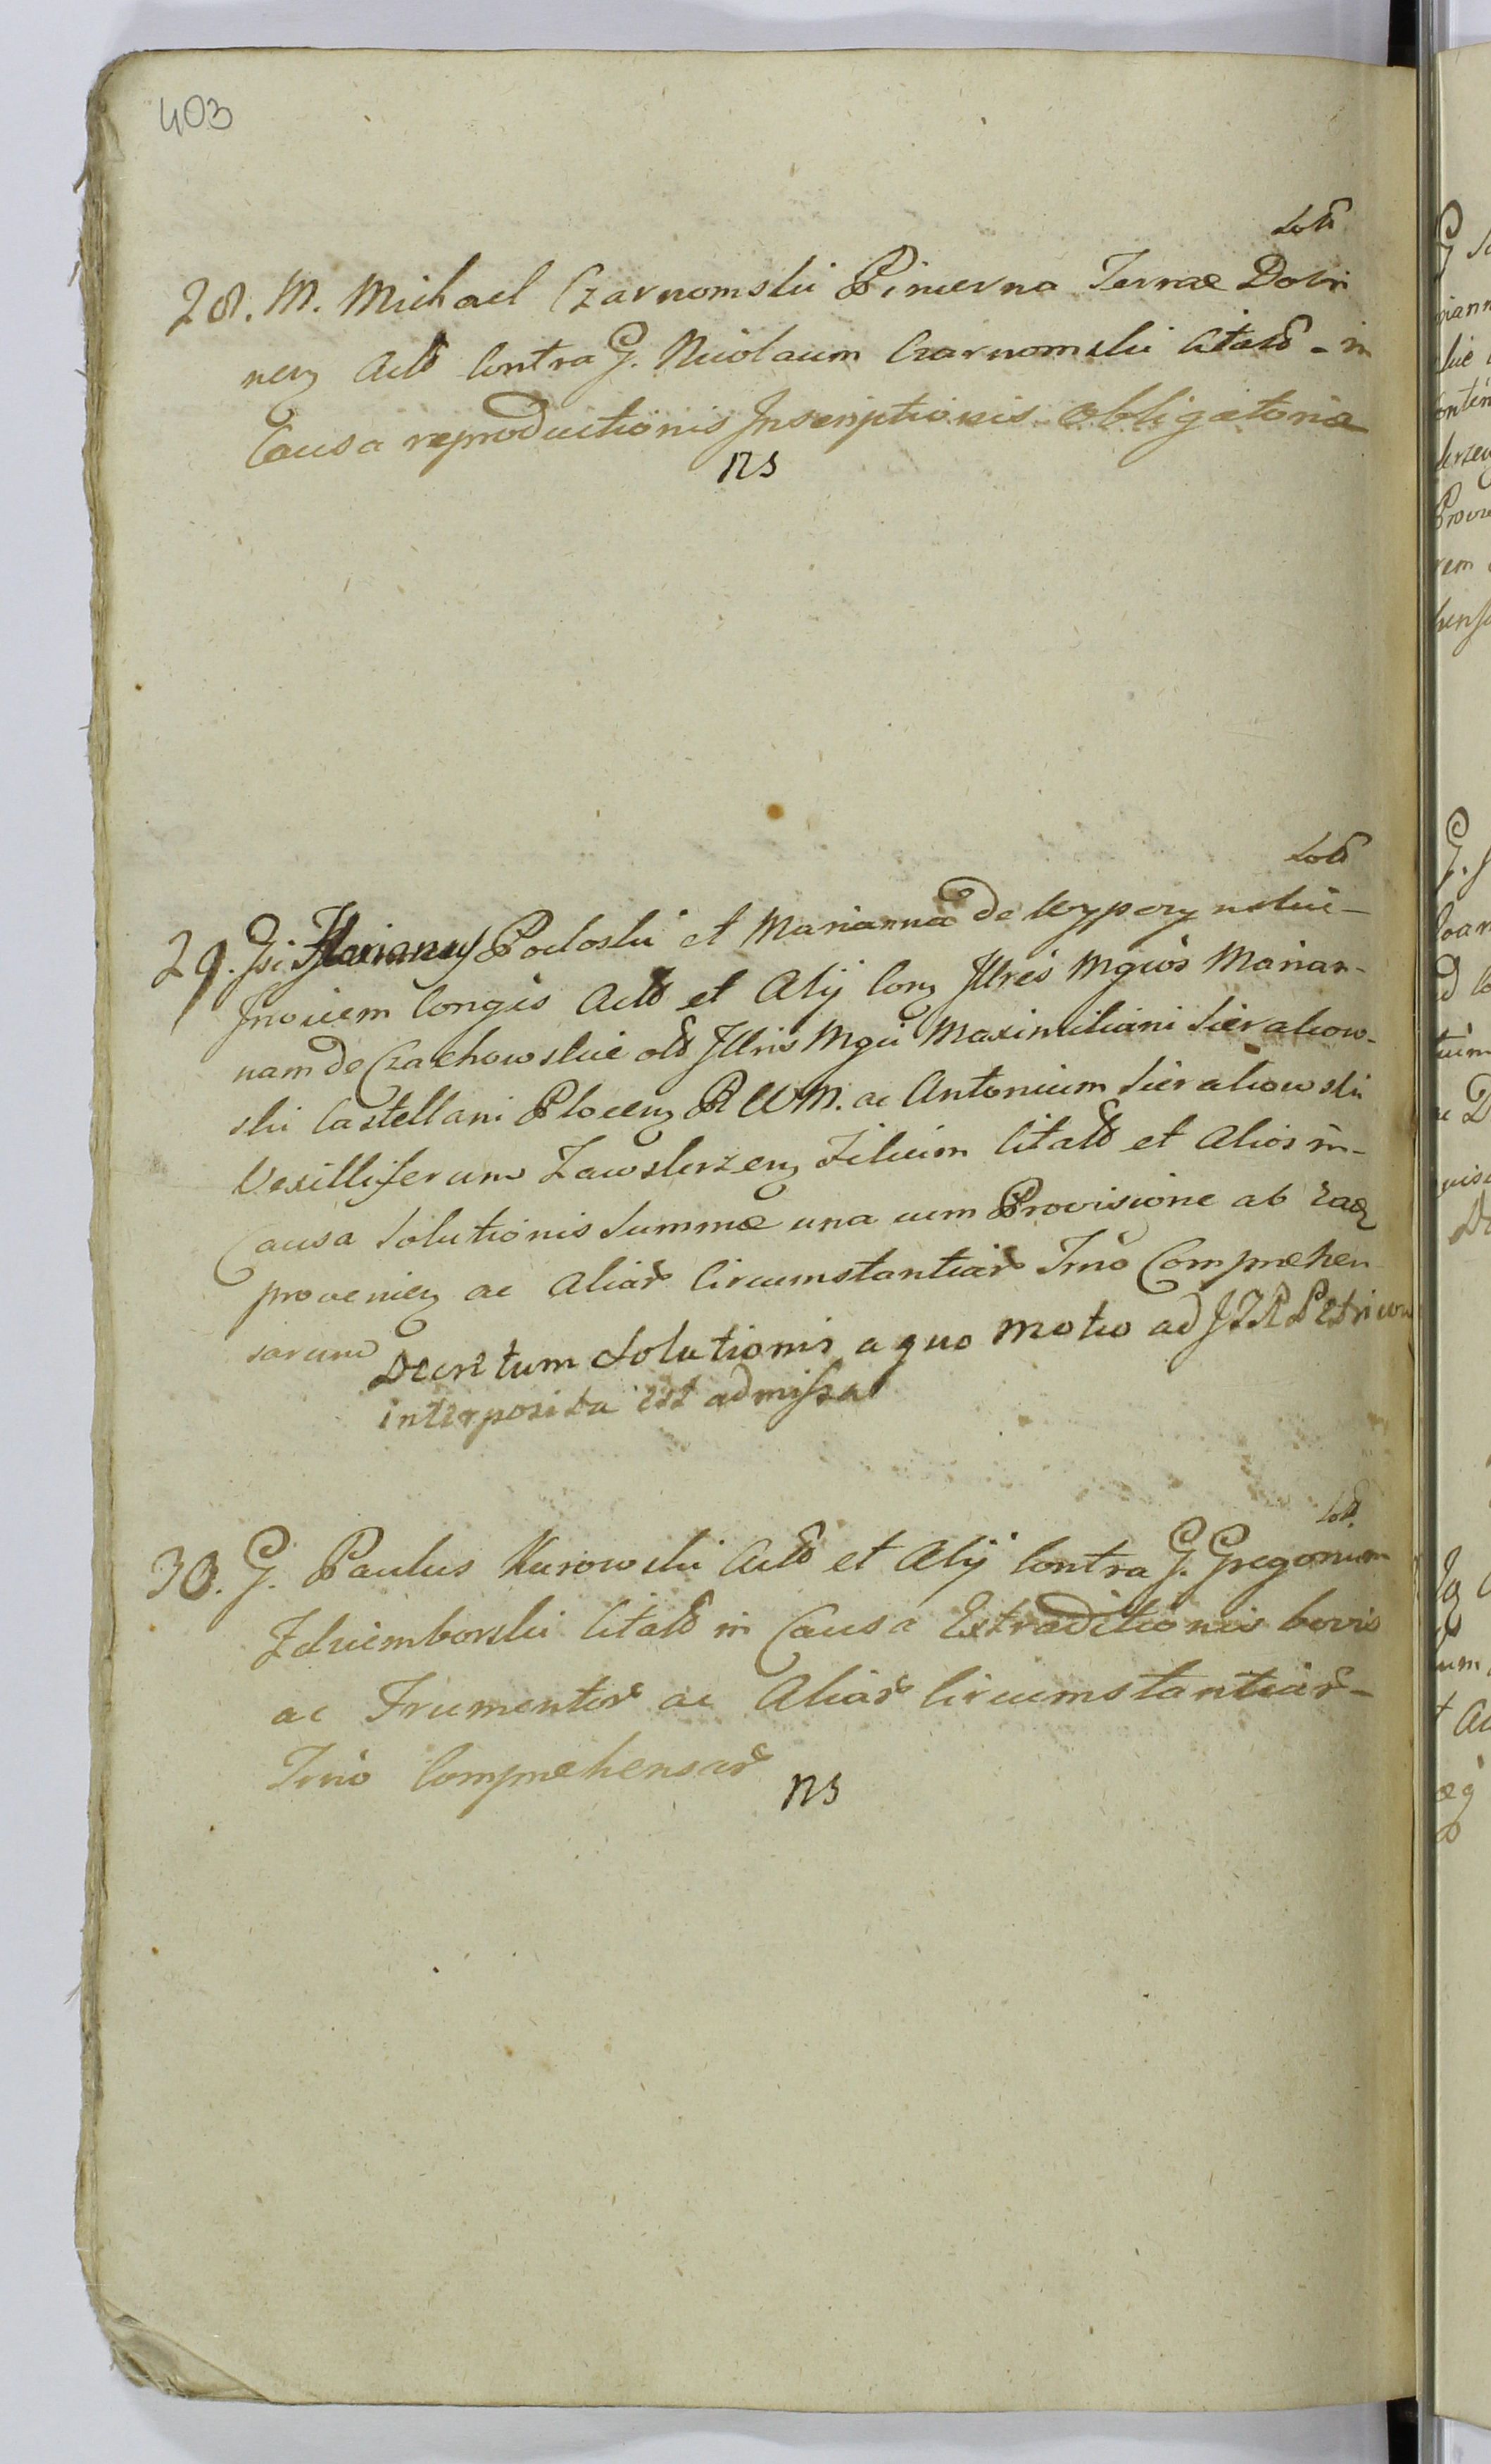 403
28. M. Michael Czarnomski Pincerna Terræ Dobri
nen Actor Contra G. Nicolaum Czarnomski Citatũ - in
Causa reproductionis Inscriptionis obligatoriæ
NS
29. Floriany Podoski et Marianna de
Invicem Conges Actor et Alij Con Illres Mgcos Marian-
nam de Czachowskie olũ Illris Mgci Maximiliani Sierakow-
ski Castellani Plocen ac Antonium Sierakowski
Vexilliferum Zawskrzen Filium Citatũ et Alios in-
Causa Solutionis Summæ una cum Provisione ab Eadẽ
provenien ac Aliarũ Circumstantiarũ Trno Comprehen
sarum
Decretum Solutionis a quo motio ad JTR Petricov
interposita est admissa
30. G. Paulus Kurowski Actor et Alij Contra G. Gregorium
Zdziemborski Citatũ in Causa Extraditionis bovis
ac Frumentorũ ac Aliarũ Circumstantiarũ -
Trno Comprehensarũ
NS